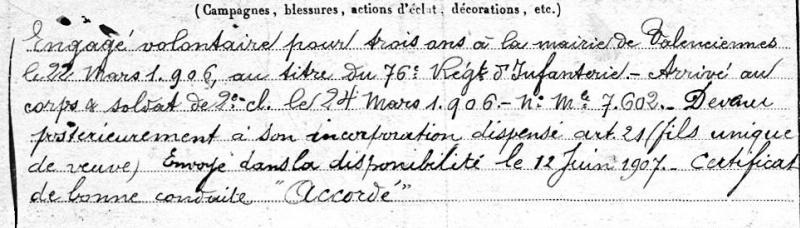 (Campagnes, blessures, actions d'éclat, décorations, etc.)
Engagé volontaire pour trois ans à la mairie de Valenciennes
le 22 Mars 1.906, au titre du 76e Régt d'Infanterie. - Arrivé au
corps & soldat de 2e cl. le 24 Mars 1.906. - No Mle 7.602. - Devenu
postérieurement à son incorporation dispensé art. 21 (fils unique
de veuve) Envoyé dans la disponibilité le 12 Juin 1907. - Certificat
de bonne conduite "Accordé"